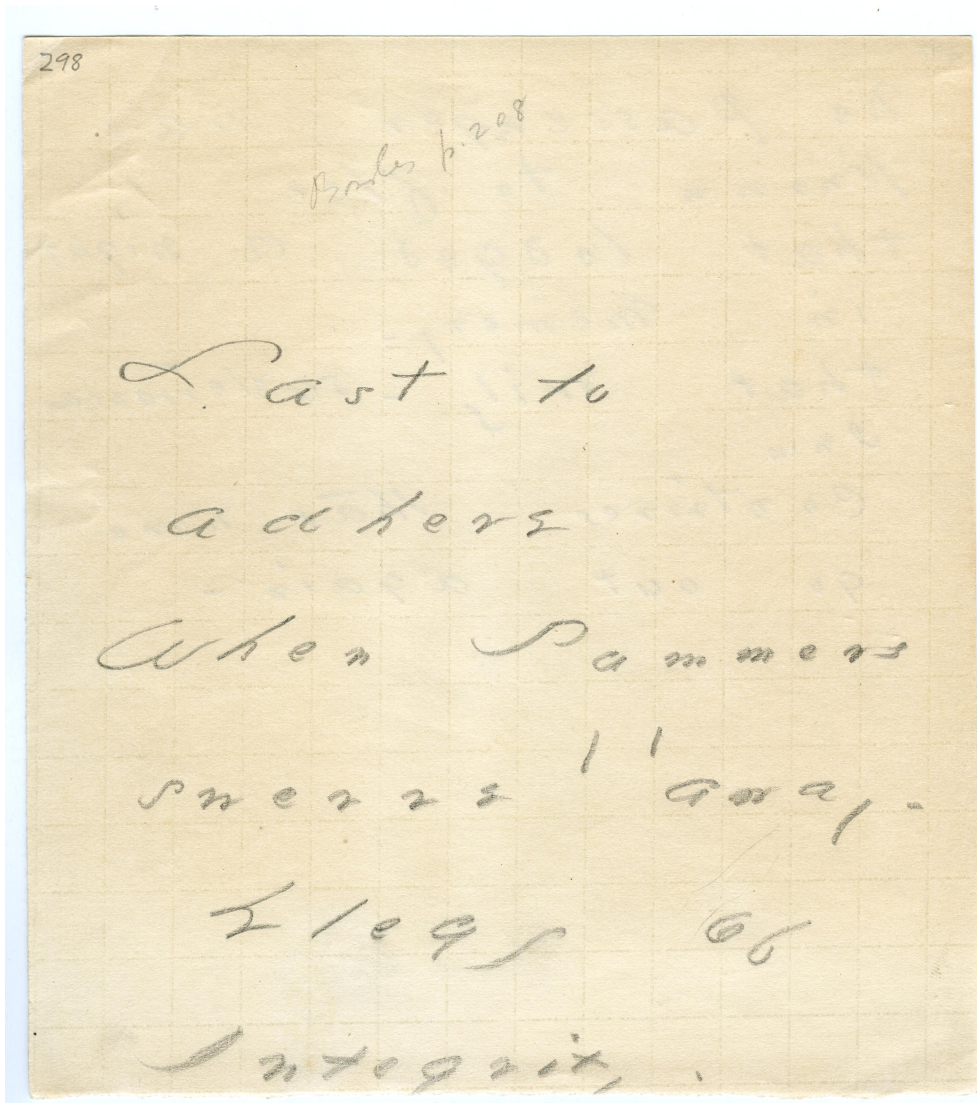 298
p. 208
Last to
adhere
When Summers
swerve away -
Elegy of
Integrity.